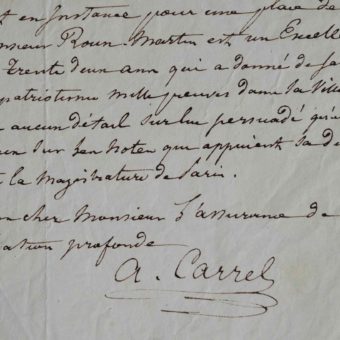 t en instance pour une place de
nsieur Roun-Martin est un Excelle
Trente deux ann qui a donné de sa
patriotisme mille preuves dans la Ville
aucun détail sur lui persuadé qu'e
sur les notes qui appuient sa de
la magistrature de Paris.
on cher Monsieur l'assurance de
ration profonde
A. Carrel